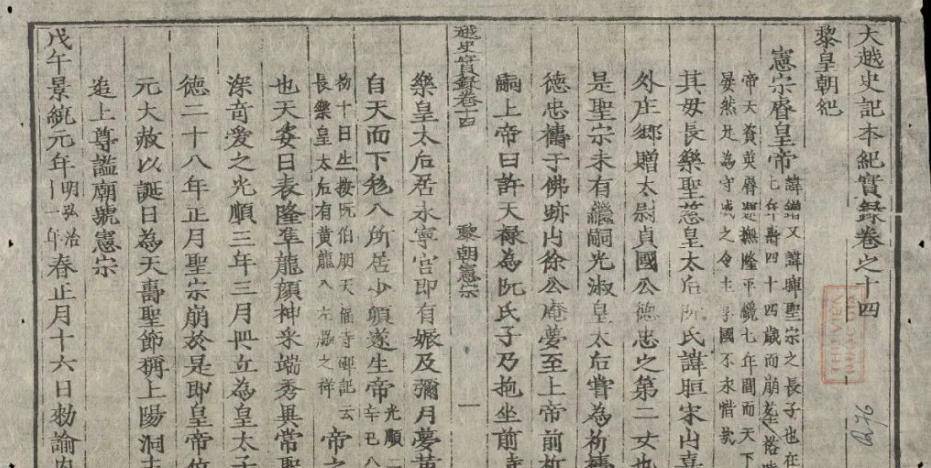 大越史記本紀實錄卷之十四
黎皇朝紀
憲宗睿皇帝
諱鏳又諱暉聖宗之長子也在
七年壽四十四歲而崩葬
帝天資英睿 撫隆平 七年間而天下
晏然足為守成之令主 國不永惜哉
其母長樂聖慈皇太后阮氏諱䀢宋山嘉
外庄鄉贈太尉貞國公德忠之第二女也
是聖宗未有繼嗣光淑皇太后嘗為祈
德忠禱于佛跡山徐公庵夢至上帝前祈
嗣上帝曰許天祿為阮氏子乃抱坐前
越史實錄卷十四
黎朝憲宗
一
樂皇太后居永寧宮即有娠及彌月夢黃
自天而下 入所居少頃遂生帝
光順二
辛巳八
初十日生按阮伯朋天福寺碑記云
長樂皇太后有黃龍入左 之祥
帝之
也天姿日表隆準龍顏神采端秀異常聖
深奇愛之光順三年三月 立為皇太子
德二十八年正月聖宗崩於是即皇帝位
元大赦以誕日為天壽聖節稱上陽洞主
追上尊謚廟號憲宗
戊午景統元年
明弘治
十一年
春正月十六日勑諭內